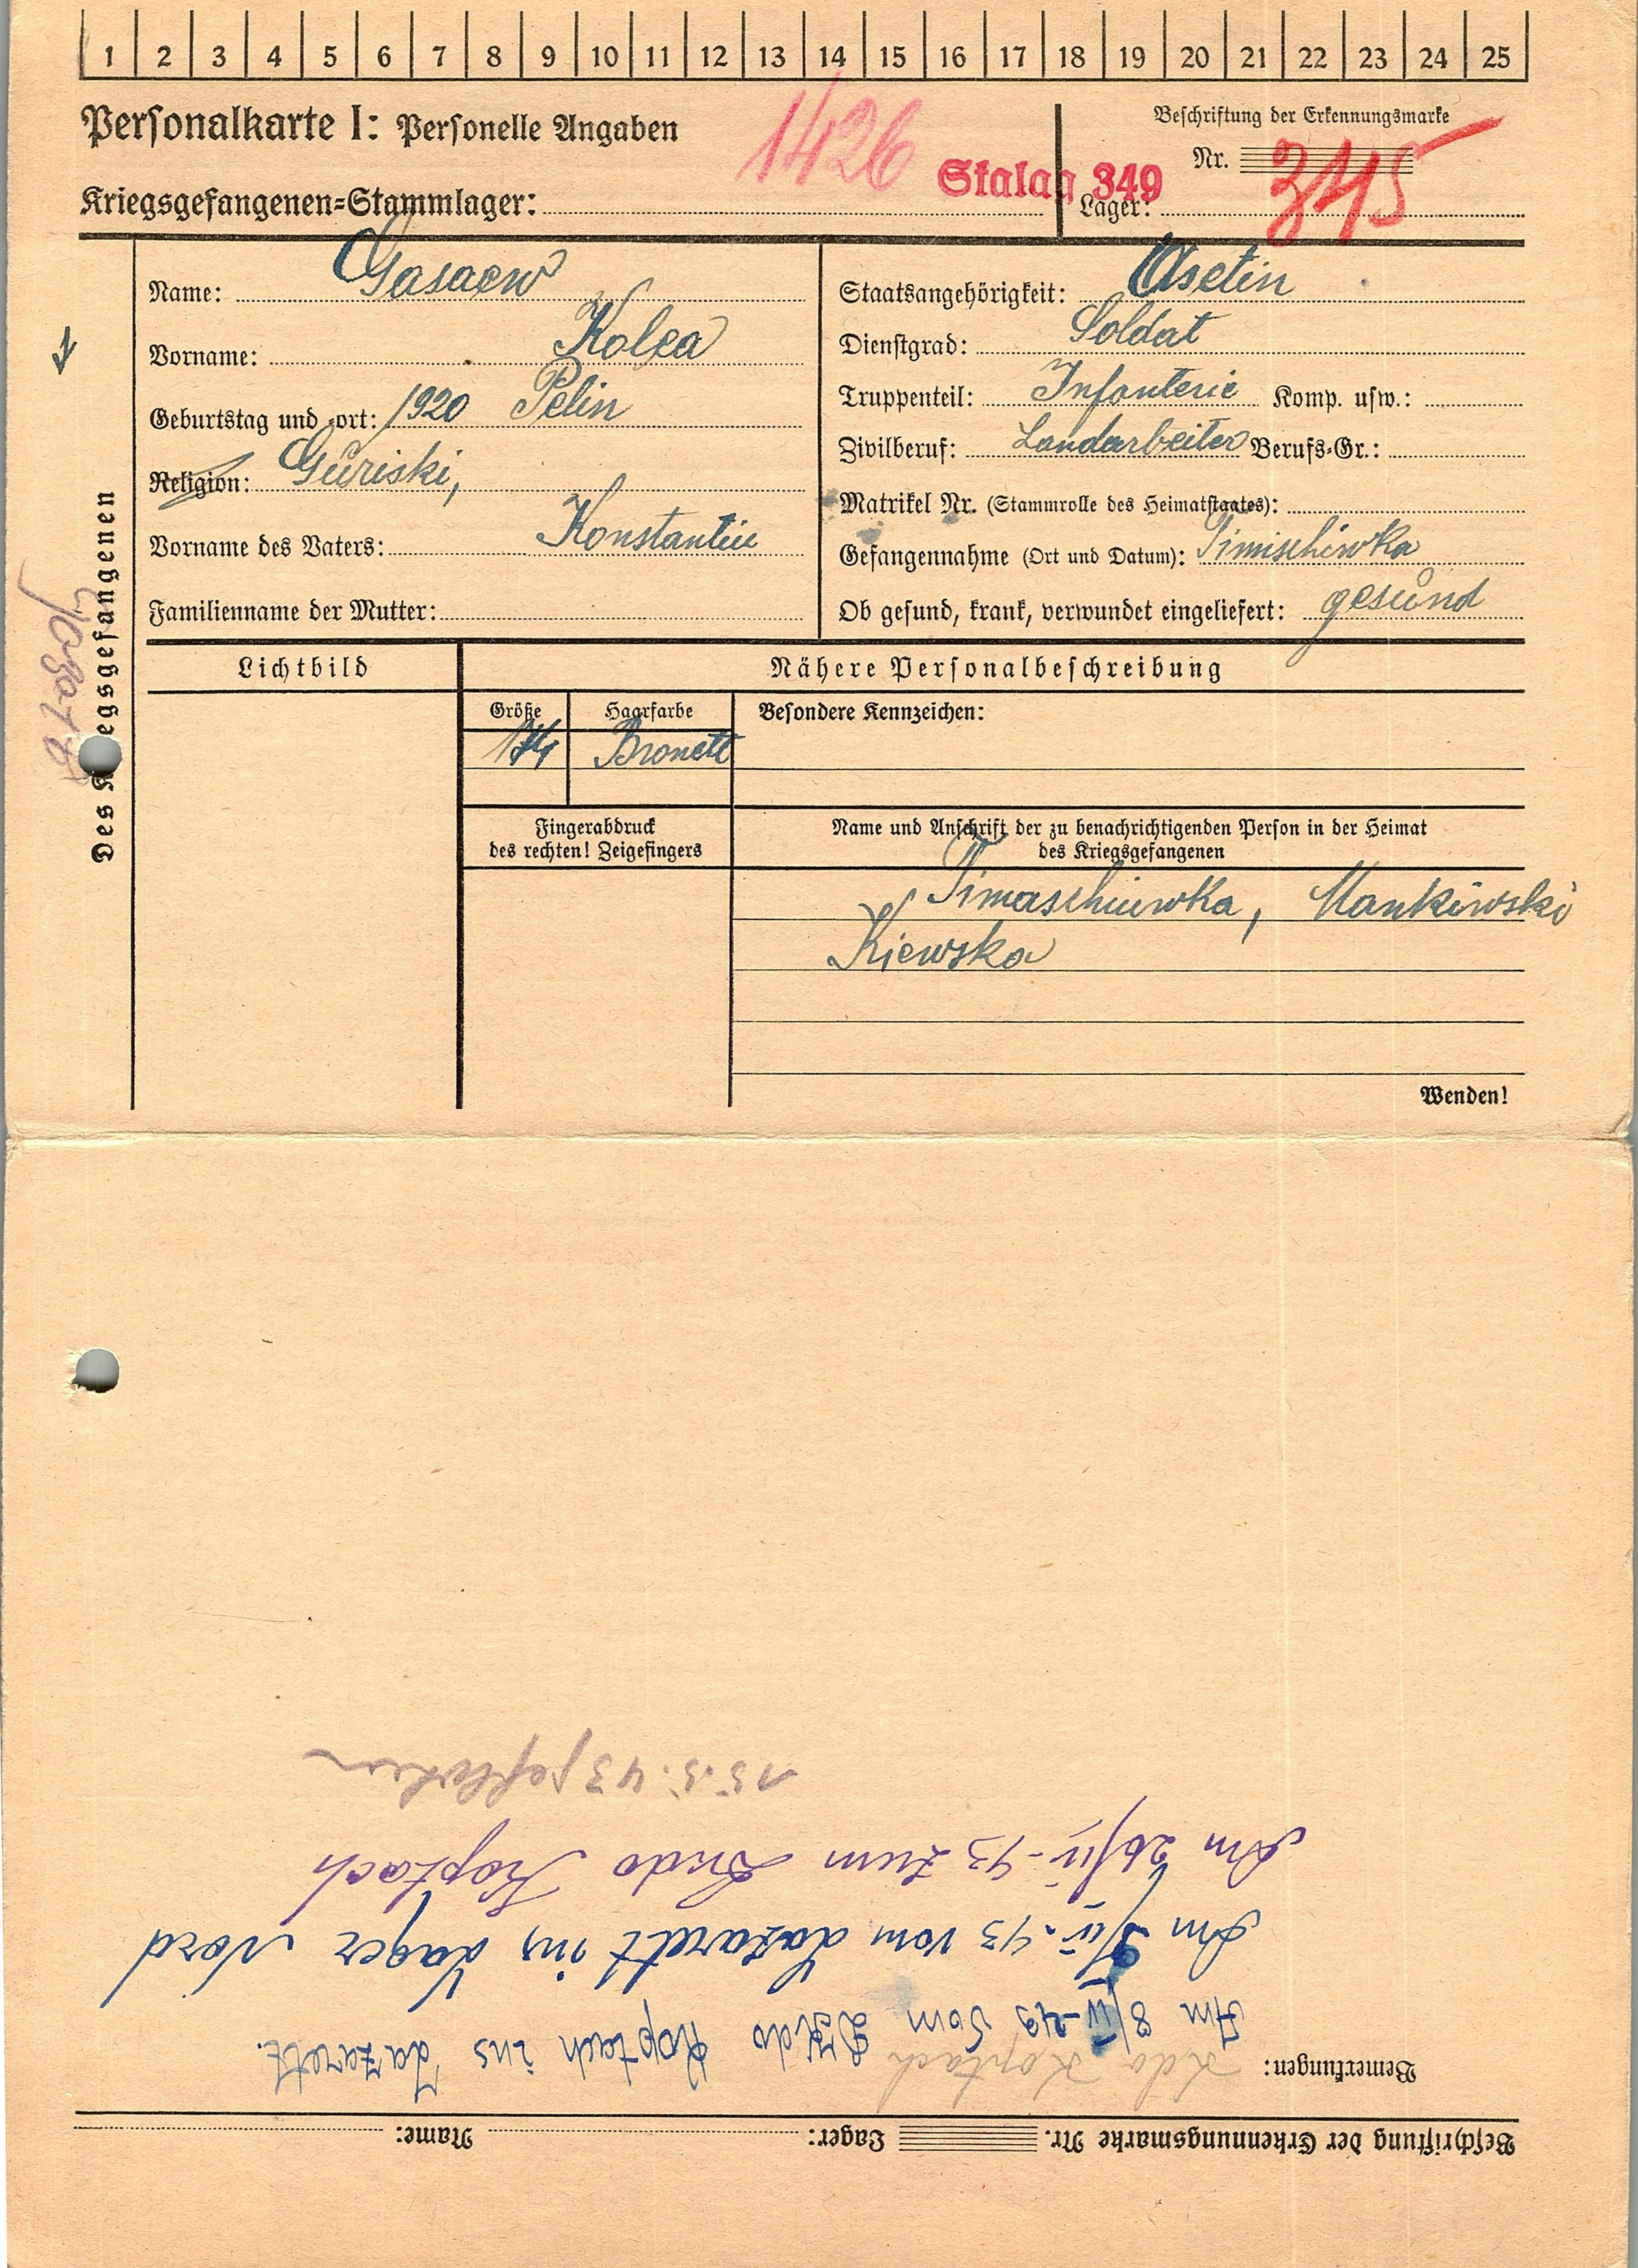 1 2 3 4 5 6 7 8 9 10 11 12 13 14 15 16 17 18 19 20 21 22 23 24 25
Personalkarte I: Personelle Angaben
1426
Beschriftung der Erkennungsmarke
Nr. 315
Kriegsgefangenen=Stammlager:
Stalag 349
Lager:
Des Kriegsgefangenen
Name: Gasaew
Vorname: Kolea
Geburtstag und -ort: 1920 Pelin
Religion: Guriski,
Vorname des Vaters: Konstantin
Familienname der Mutter:
Staatsangehörigkeit: Asetin
Dienstgrad: Soldat
Truppenteil: Infanterie Komp. usw.:
Zivilberuf: Landarbeiter Berufs=Gr.:
Matrikel Nr. (Stammrolle des Heimatstaates):
Gefangennahme (Ort und Datum): Timischiwka
Ob gesund, krank, verwundet eingeliefert: gesund
Lichtbild
Nähere Personalbeschreibung
Größe Haarfarbe Besondere Kennzeichen:
174 Bronett
Fingerabdruck
des rechten! Zeigefingers
Name und Anschrift der zu benachrichtigenden Person in der Heimat
des Kriegsgefangenen
Timaschiewka, Mankiwski
Kiewska
Wenden!
Beschriftung der Erkennungsmarke Nr. Lager: Name:
Bemerkungen: Kdo Koptach
Am 8/IV-43 vom Kdo Koptach ins Lazarett.
Am 9/IV-43 vom Lazarett ins Lager Nord
Am 26/IV-43 zum Kdo Koptach
15.5.43 gestorben